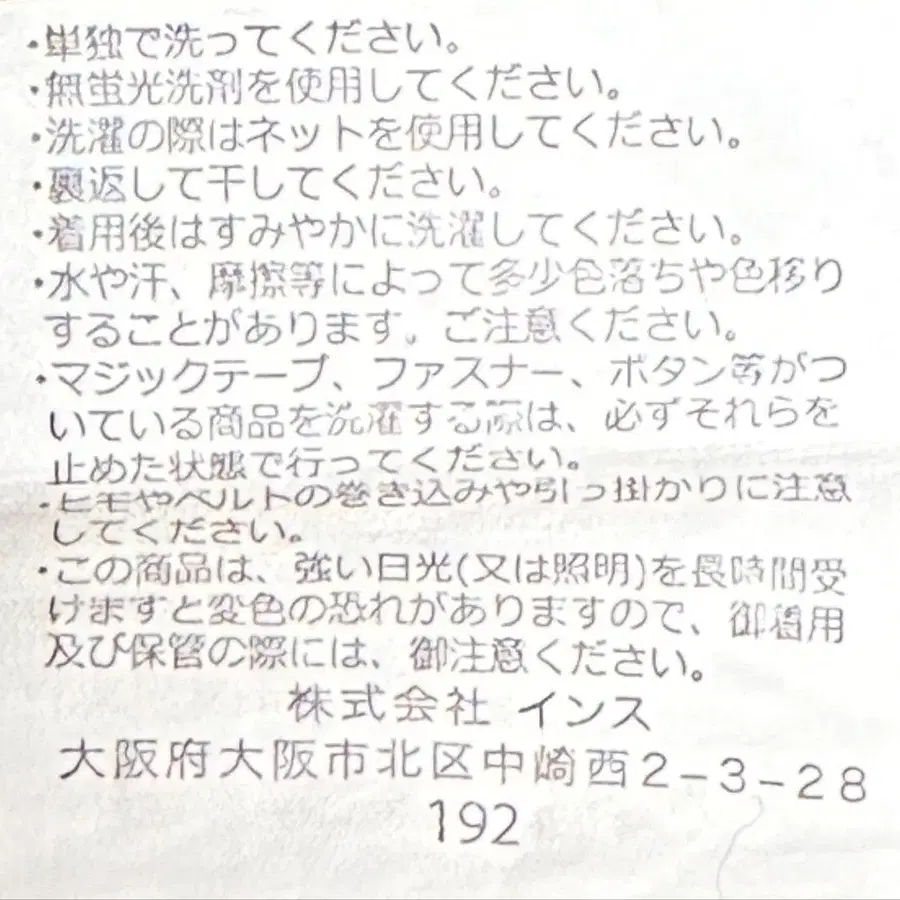 ・単独で洗ってください。
・無蛍光洗剤を使用してください。
・洗濯の際はネットを使用してください。
・裏返して干してください。
・着用後はすみやかに洗濯してください。
・水や汗、摩擦等によって多少色落ちや色移り
することがあります。ご注意ください。
・マジックテープ、ファスナー、ボタン等がつ
いている商品を洗濯する際は、必ずそれらを
止めた状態で行ってください。
・ヒモやベルトの巻き込みや引っ掛かりに注意
してください。
・この商品は、強い日光(又は照明)を長時間受
けますと変色の恐れがありますので、御着用
及び保管の際には、御注意ください。
株式会社 インス
大阪府大阪市北区中崎西2-3-28
192